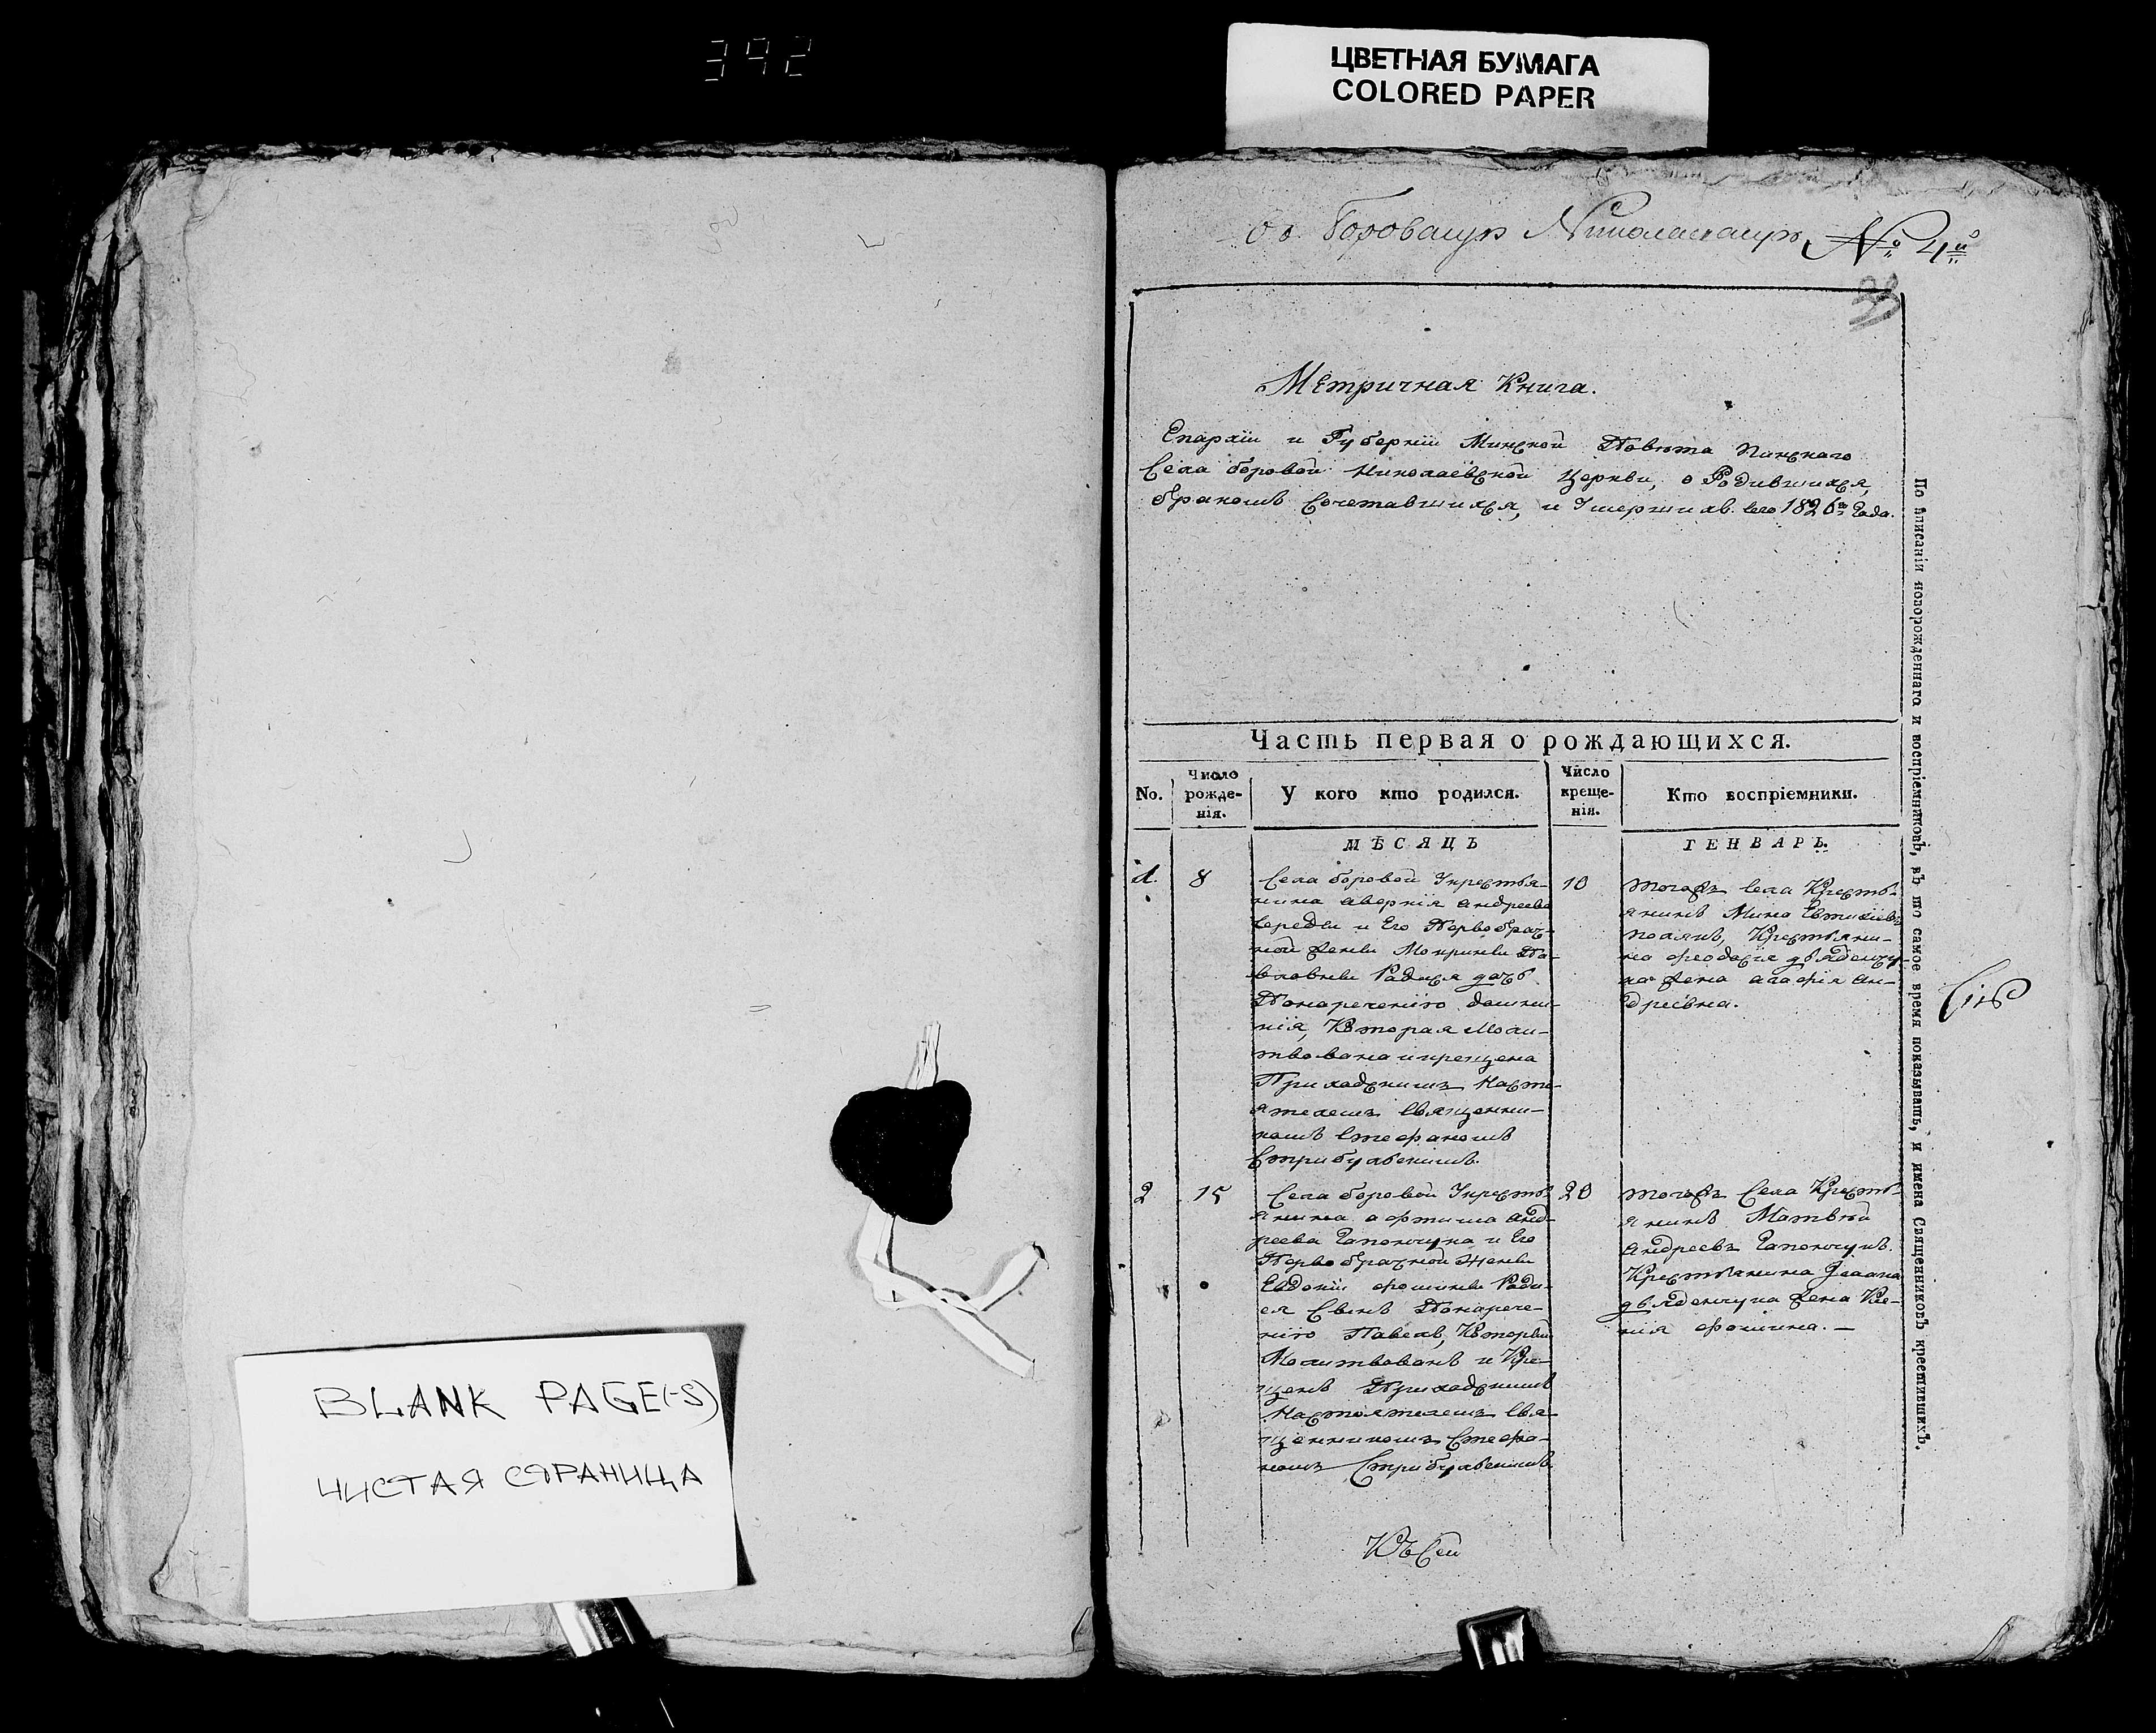 392
ЦВЕТНАЯ БУМАГА
COLORED PAPER
BLANK PAGE(-S)
ЧИСТАЯ СТРАНИЦА
№ 4й
33
Метричная Книга.
Епархіи и Губерніи Минской Повѣта Пинскаго
Села боровой Николаевской Церкви, о Родившихся,
бракомъ Сочетавшихся, и Умершихъ. сего 1826го Года.
Часть первая о рождающихся.
No.
Число рожде-нія.
У кого кто родился.
Число креще-нія.
Кто воспріемники.
МѢСЯЦЪ
ГЕНВАРЬ.
1.
8
Села боровой Укрестья-
нина аверкія андреева
и Его Первобрач-
ной Жены Мокрины Па-
вловны Родися дочь
Понареченію домни-
кія, Которая Моли-
твована икрещена
Приходскимъ Насто-
ятелемъ Священни-
комъ Стефаномъ
10
тогожъ Села Кресть-
янинъ Мина
Крестьяни-
на феодосія
жена агафія ан-
дреевна.
2
15
Села боровой Укресть-
янина анд-
реева Гапончука и Его
Первобрачной Жены
Евдокіи фомины Роди-
ся Сынъ Понарече-
нію Павелъ, Который
Молитвованъ и Кре-
щенъ Приходскимъ
Настоятелемъ Свя-
щенникомъ Стефа-
номъ
20
тогожъ Села Кресть-
янинъ Матвѣй
андреевъ Гапончукъ.
Крестьянина
жена Ксе-
нія фомина. —
Къ Сей
По вписаніи новорожденнаго и воспріемниковъ, въ то самое время показывать, и имена Священниковъ крестившихъ.